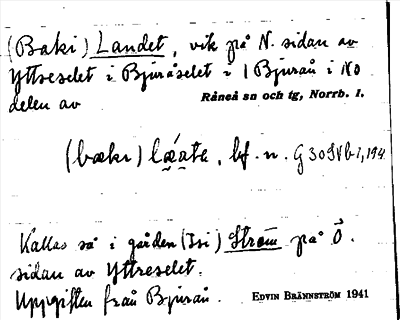 (Baki) Landet, vik på N. sidan av
Yttreselet i Bjuråselet i 1 Bjuraå i NO
delen av
Råneå sn och tg, Norrb. l.
(bækɩ) lǽạtɐ, bf. n. G 30 IVb 1, 194
Kallas så i gården (Isi) Ström på Ö.
sidan av Yttreselet.
Uppgiften från Bjurån.
EDVIN BRÄNNSTRÖM 1941